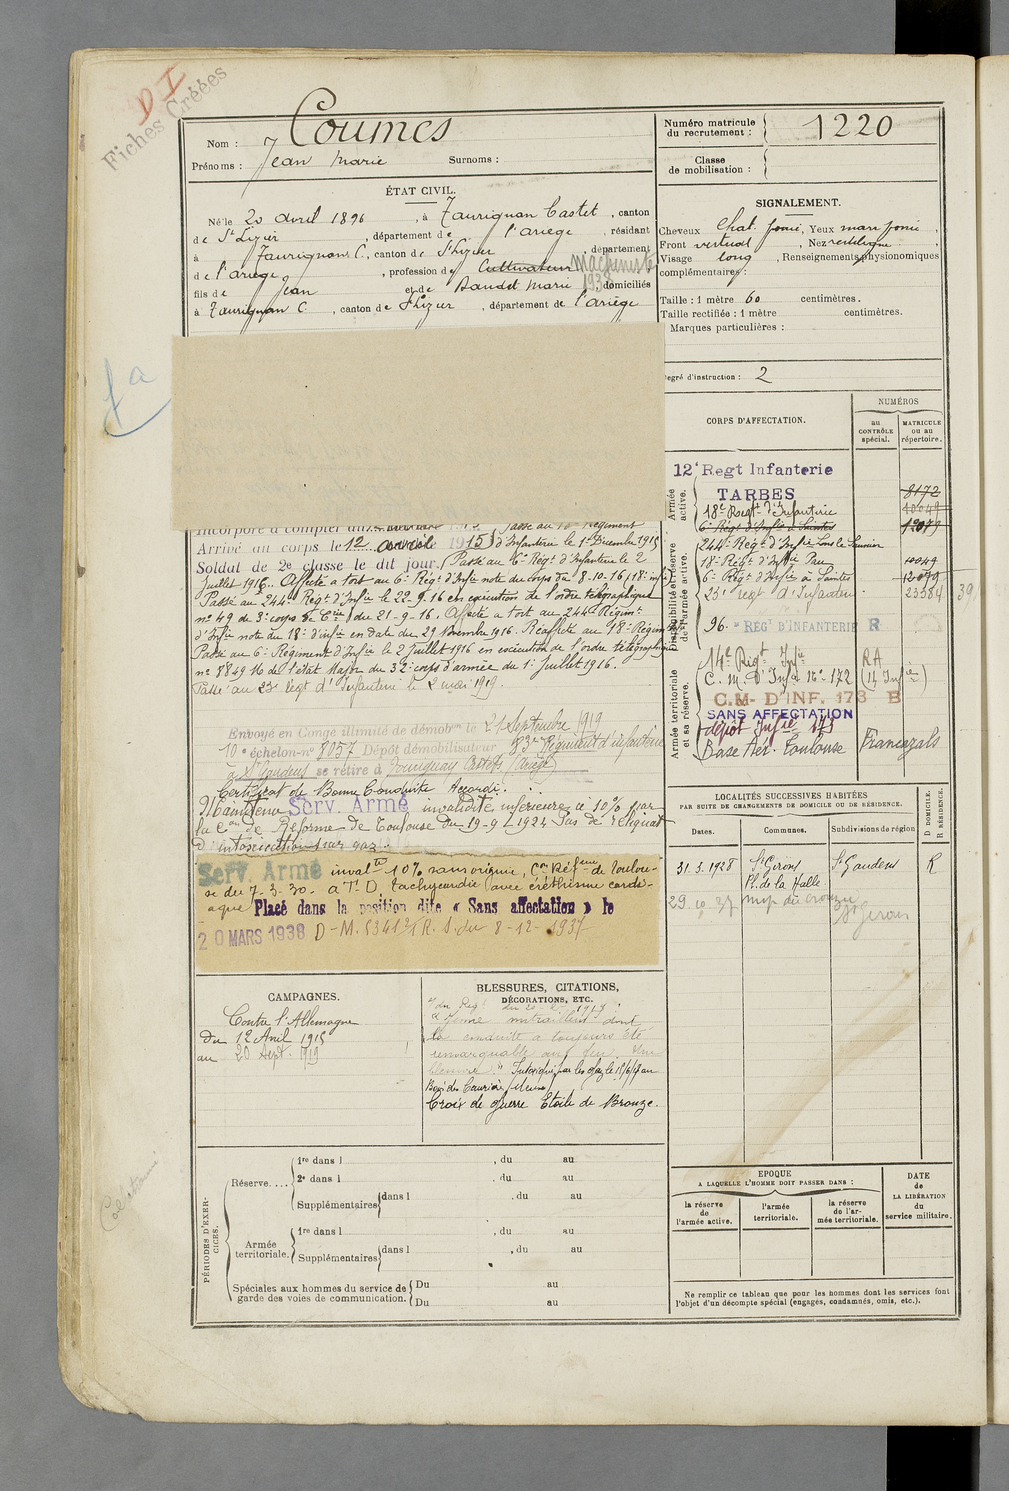 D I
Fiches Créées
Nom : Coumes
Prénoms : Jean Marie Surnoms :
Numéro matricule du recrutement : 1220
Classe de mobilisation :
ÉTAT CIVIL.
Né le 20 avril 1896, à Taurignan Castet, canton
de St Lizier, département de l'ariège, résidant
à Taurignan C., canton de St Lizier, département
de l'ariège, profession de Cultivateur machiniste
fils de Jean et de Baudet Marie 1938 domiciliés
à Taurignan C., canton de St Lizier, département de l'ariège
SIGNALEMENT.
Cheveux Chat. foncé, Yeux marr foncé,
Front vertical, Nez rectiligne,
Visage long, Renseignements physionomiques
complémentaires :
Taille : 1 mètre 60 centimètres.
Taille rectifiée : 1 mètre centimètres.
Marques particulières :
Degré d'instruction : 2
fa
Incorporé à compter du
passé au 18e Régiment
Arrivé au corps le 12 avril 1915 d'Infanterie le 1er Décembre 1915
Soldat de 2e classe le dit jour. Passé au 6e Régt d'Infanterie le 2
Juillet 1916. Affecté a tort au 6e Régt d'Infie note du corps du 8-10-16 (18e infie)
Passé au 244e Régt d'Infie le 22-9-16 en exécution de l'ordre télégraphique
no 49 du 3e corps de Cie du 21-9-16. Affecté a tort au 244e Régimt
d'Infie note du 18e d'infie en date du 29 Novembre 1916. Réaffecté au 18e Régim
Passé au 6e Régiment d'Infie le 2 Juillet 1916 en exécution de l'ordre télégraphique
no 8849 16 de l'état Major du 32e corps d'armée du 1er Juillet 1916.
Passé au 23e Regt d'Infanterie le 2 mai 1919.
Envoyé en Congé illimité de démobon le 21 Septembre 1919
10e échelon no 8057 Dépôt démobilisateur 83e Régiment d'infanterie
à St Gaudens se retire à Taurignan Castet (Ariège)
Certificat de Bonne Conduite Accordé.
Maintenu Serv. Armé invalidité inférieure à 10% par
la Con de Réforme de Toulouse du 19-9-1924 Pas de reliquat
d'intoxication par gaz.
Serv. Armé invalté 10% sans origine, Con Réfme de Toulou-
se du 7-3-30. a T. D. tachycardie avec éréthisme cardi-
aque Placé dans la position dite « Sans affectation » le
20 MARS 1938 D-M. du 8-12-1937
CORPS D'AFFECTATION.
NUMÉROS
au CONTRÔLE spécial.
MATRICULE ou au répertoire.
Armée active.
12e Regt Infanterie
TARBES 8172
18e Regt d'Infanterie 10049
6e Régt d'Infie à Saintes 12079
Disponibilité et réserve de l'armée active.
244e Régt d'Infie Lons le Saunier
18e Régt d'Infie Pau 10049
6e Régt d'Infie à Saintes 12079
23e regt d'Infanterie 23384
39
96. e REGt D'INFANTERIE R
Armée territoriale et sa réserve.
14e Régt Infie RA
C. M. d'Infie no 172 (14 Infie)
C.M- D'INF. 173 B
SANS AFFECTATION
dépôt Infie 173
Base Aér. Toulouse Francazals
LOCALITÉS SUCCESSIVES HABITÉES
PAR SUITE DE CHANGEMENTS DE DOMICILE OU DE RÉSIDENCE.
Dates. Communes. Subdivisions de région D DOMICILE. R RÉSIDENCE.
31.3.1928 St Girons St Gaudens R
Pl. de la Halle
29.10.37
St Girons
CAMPAGNES.
Contre l'Allemagne
Du 12 Avril 1915
au 20 Sept. 1919
BLESSURES, CITATIONS,
DÉCORATIONS, ETC.
"Jeune mitrailleur dont
la conduite a toujours été
remarquable au feu. Une
blessure." Intoxiqué par les gaz le
Bois des Caurières Meuse
Croix de guerre Étoile de Bronze.
PÉRIODES D'EXERCICES.
Réserve....
1re dans l , du au
2e dans l , du au
Supplémentaires dans l , du au
Armée territoriale.
1re dans l , du au
Supplémentaires dans l , du au
Spéciales aux hommes du service de garde des voies de communication.
Du au
Du au
EPOQUE
A LAQUELLE L'HOMME DOIT PASSER DANS :
la réserve de l'armée active.
l'armée territoriale.
la réserve de l'armée territoriale.
DATE de LA LIBÉRATION du service militaire.
Ne remplir ce tableau que pour les hommes dont les services font
l'objet d'un décompte spécial (engagés, condamnés, omis, etc.).